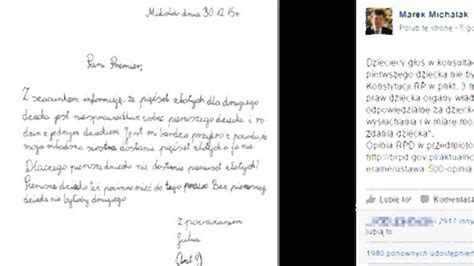 Mikołów dnia 30.12.15r.
Pani Premier,
Z szacunkiem informuję, że pięćset złotych dla drugiego
dziecka jest niesprawiedliwe wobec pierwszego dziecka i ro-
dzin z jednym dzieckiem. Jest mi bardzo przykro z powodu, że
moja młodsza siostra dostanie pięćset złotych a ja nie.
Dlaczego pierwsze dziecko nie dostanie pięciuset złotych?
Pierwsze dziecko też powinno mieć do tego prawo. Bez pierwszego
dziecka nie byłoby drugiego.
Z poważaniem
Julia
Marek Michalak
Polub tę stronę · 5 go
Dziecięcy głos w konsulta
pierwszego dziecka nie by
Konstytucji RP w pkt. 3 n
praw dziecka organy wład
odpowiedzialne za dzieck
wysłuchania i w miarę mo
zdania dziecka".
Opinia RPD w przedmioto
http://brpd.gov.pl/aktualno
eralne/ustawa-500-opinia
Lubię to! Komentarz
i 2917 inny
lubią to
1980 ponownych udostępnień